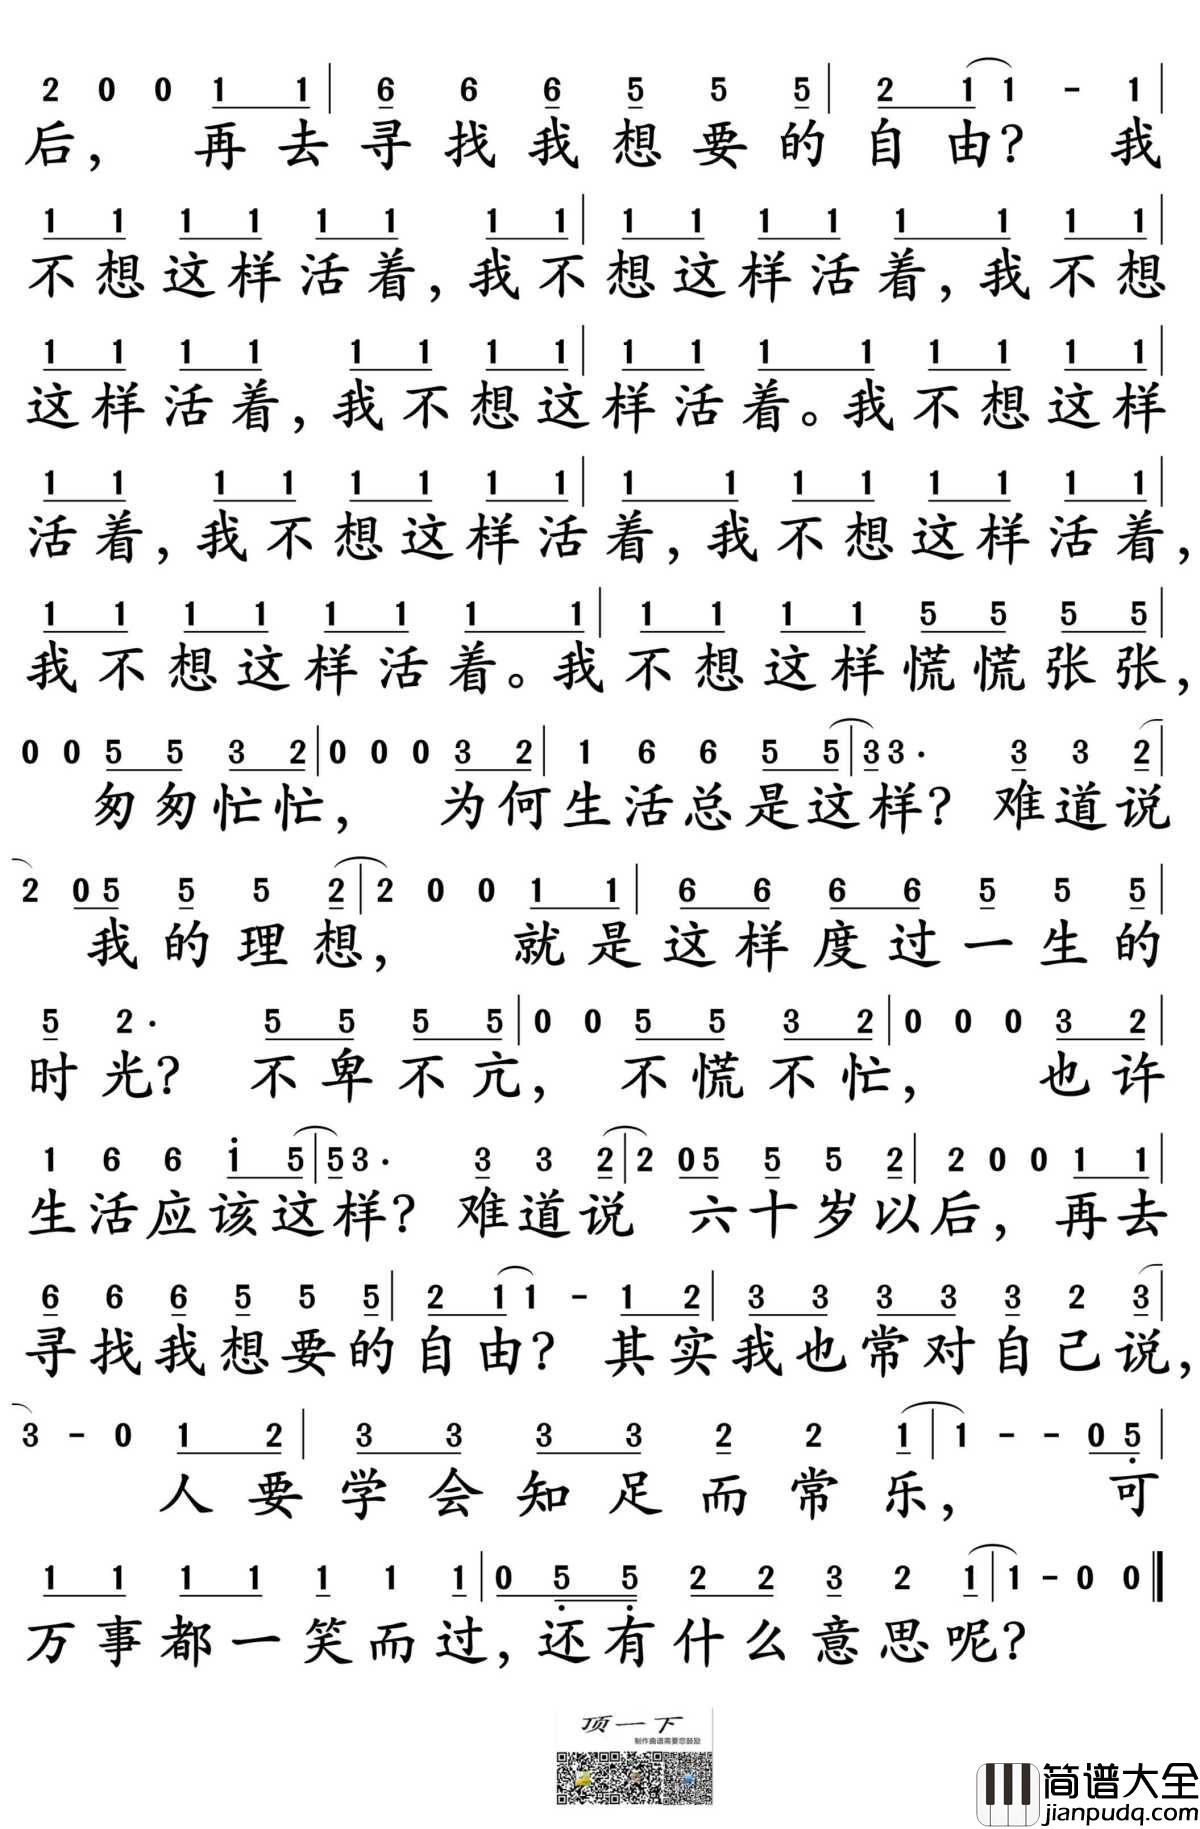 2 0 0 1 1 | 6 6 6 5 5 5 | 2 1 1 - 1 |
后， 再去寻找我想要的自由？ 我
1 1 1 1 1 1 1 1 | 1 1 1 1 1 1 1 1 |
不想这样活着，我不想这样活着，我不想
1 1 1 1 1 1 1 1 | 1 1 1 1 1 1 1 1 |
这样活着，我不想这样活着。我不想这样
1 1 1 1 1 1 1 1 | 1 1 1 1 1 1 1 1 |
活着，我不想这样活着，我不想这样活着，
1 1 1 1 1 1 1 1 | 1 1 1 1 5 5 5 5 |
我不想这样活着。我不想这样慌慌张张，
0 0 5 5 3 2 | 0 0 0 3 2 | 1 6 6 5 5 | 3 3· 3 3 2 |
匆匆忙忙， 为何生活总是这样？ 难道说
2 0 5 5 5 2 | 2 0 0 1 1 | 6 6 6 6 5 5 5 |
我的理想， 就是这样度过一生的
5 2· 5 5 5 5 | 0 0 5 5 3 2 | 0 0 0 3 2 |
时光？ 不卑不亢， 不慌不忙， 也许
1 6 6 1 5 | 5 3· 3 3 2 | 2 0 5 5 5 2 | 2 0 0 1 1 |
生活应该这样？ 难道说 六十岁以后，再去
6 6 6 5 5 5 | 2 1 1 - 1 2 | 3 3 3 3 3 2 3 |
寻找我想要的自由？ 其实我也常对自己说，
3 - 0 1 2 | 3 3 3 3 2 2 1 | 1 - - 0 5 |
人要学会知足而常乐， 可
1 1 1 1 1 1 1 | 0 5 5 2 2 3 2 1 | 1 - 0 0 ‖
万事都一笑而过，还有什么意思呢？
顶一下
制作曲谱需要您鼓励
简谱大全
jianpudq.com